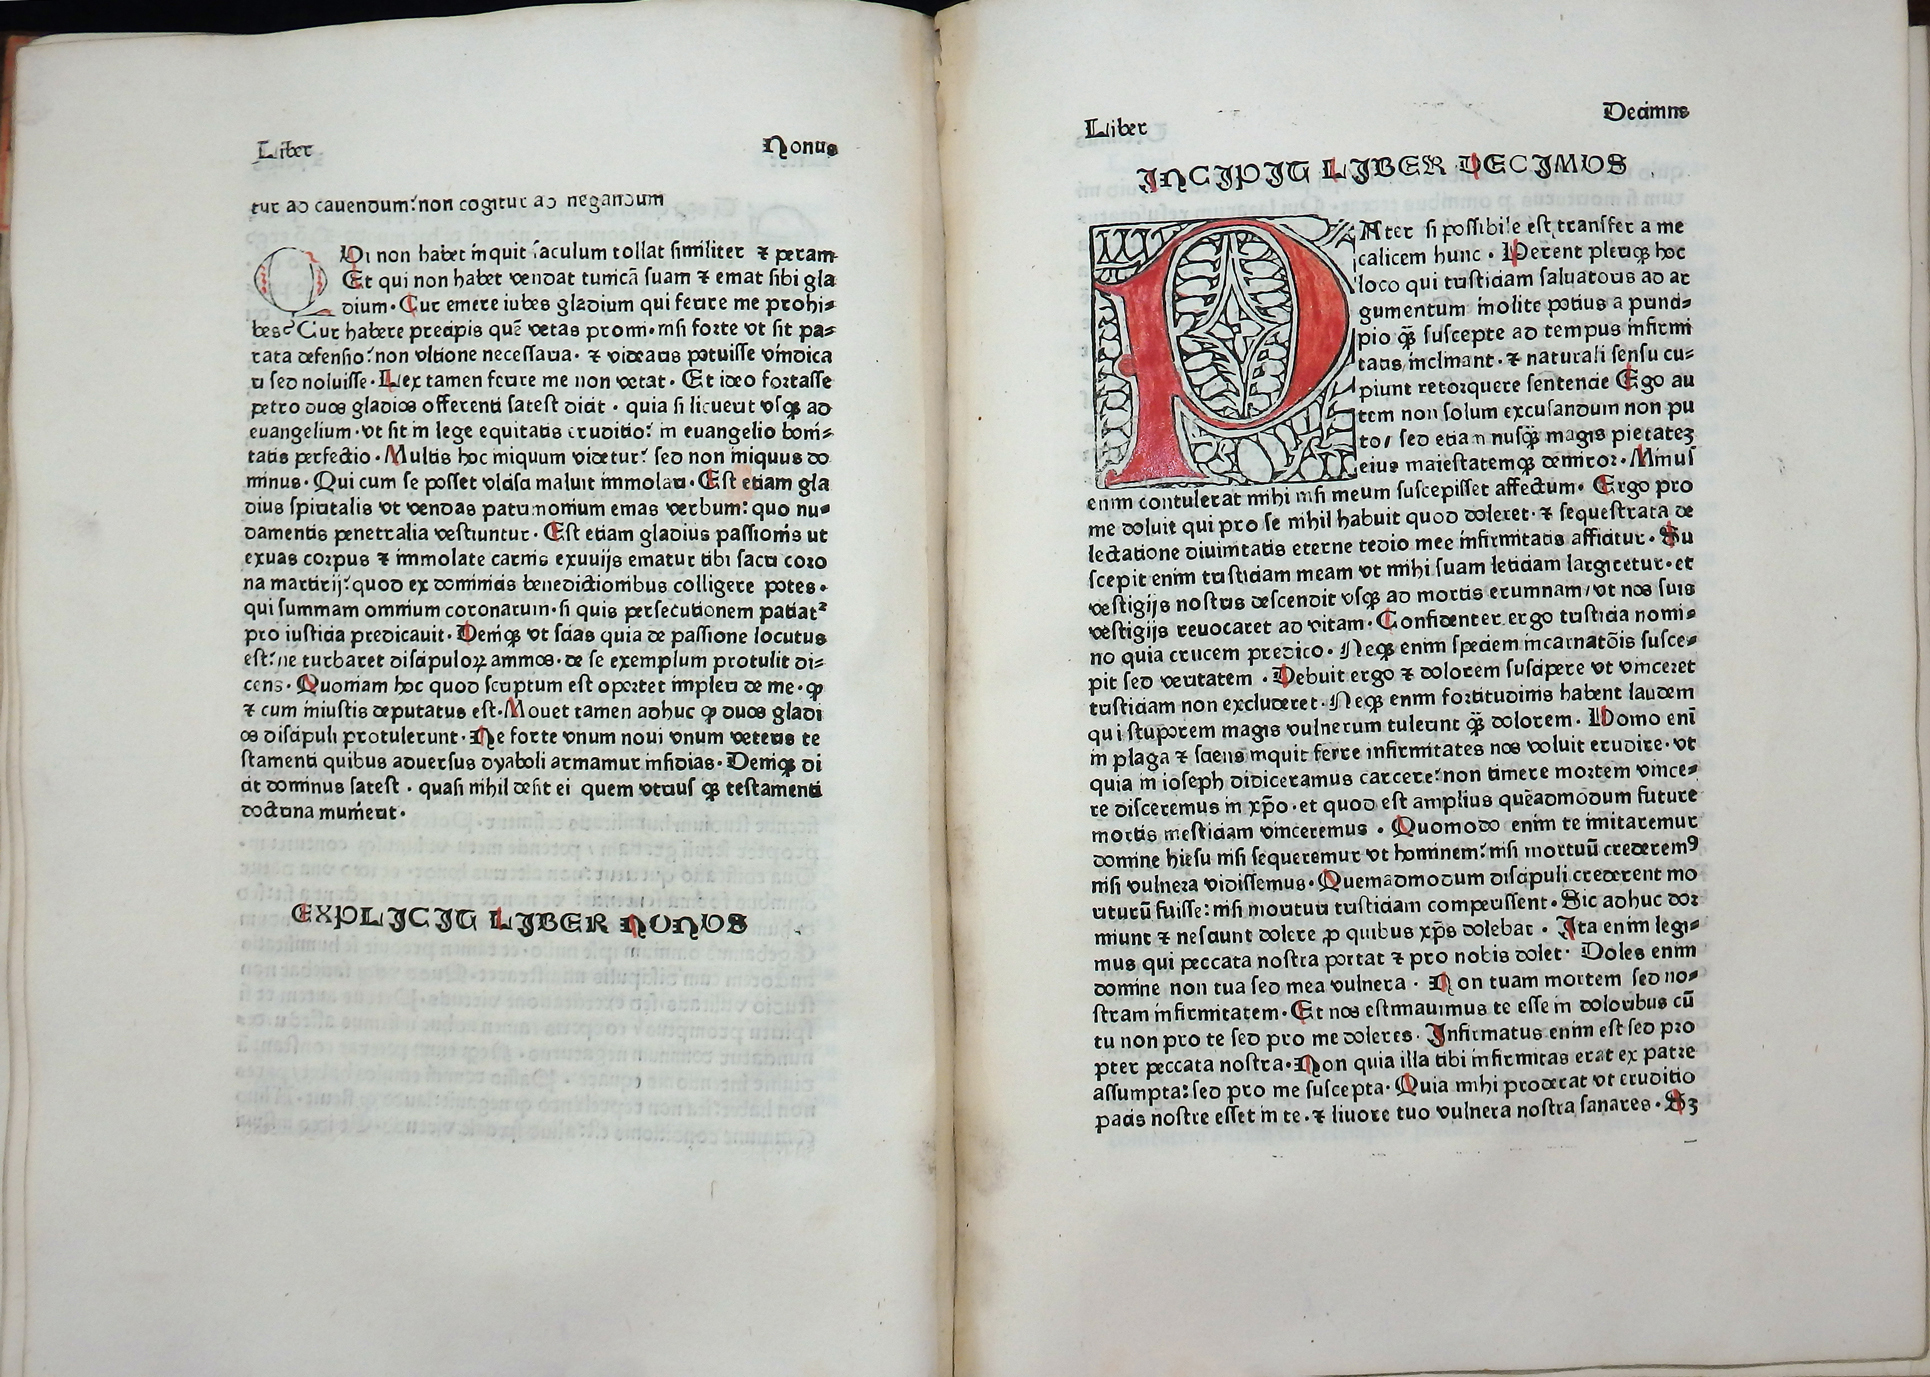 Liber Nonus
tur ad cauendum: non cogitur ad negandum
QUi non habet inquit saculum tollat similiter ⁊ peram
Et qui non habet vendat tunicā suam ⁊ emat sibi gla
dium· Cur emere iubes gladium qui ferire me prohi⸗
bes? Cur habere precipis quē vetas promi· nisi forte vt sit pa⸗
rata defensio: non vltione necessaria· ⁊ videatis potuisse vindica
ri sed noluisse· Lex tamen ferire me non vetat· Et ideo fortasse
petro duos gladios offerenti satest dicit · quia si licuerit vsqꝫ ad
euangelium· vt sit in lege equitatis eruditio: in euangelio boni⸗
tatis perfectio· Multis hoc iniquum videtur: sed non iniquus do
minus· Qui cum se posset vlcisci maluit immolari· Est etiam gla
dius spiritalis vt vendas patrimonium emas verbum: quo nu⸗
damentis penetralia vestiuntur· Est etiam gladius passionis ut
exuas corpus ⁊ immolate carnis exuuijs ematur tibi sacri coro
na martirij: quod ex dominicis benedictionibus colligere potes·
qui summam omnium coronarum· si quis persecutionem patiat᷑
pro iusticia predicauit· Deniqꝫ vt scias quia de passione locutus
est: ne turbaret discipuloꝝ animos· de se exemplum protulit di⸗
cens· Quoniam hoc quod scriptum est oportet impleri de me· ꝙ
⁊ cum iniustis deputatus est· Mouet tamen adhuc ꝙ duos gladi
os discipuli protulerunt· Ne forte vnum noui vnum veteris te
stamenti quibus aduersus dyaboli armamur insidias· Deniqꝫ di
cit dominus satest · quasi nihil desit ei quem vtriusqꝫ testamenti
doctrina munierit·
EXPLICIT LIBER NONUS
Liber Decimus
INCIPIT LIBER DECIMUS
PAter si possibile est transfer a me
calicem hunc · Herent pleriqꝫ hoc
loco qui tristiciam saluatoris ad ar
gumentum inolite potius a princi⸗
pio qꝫ̄ suscepte ad tempus infirmi
tatis inclinant· ⁊ naturali sensu cu⸗
piunt retorquere sentencie Ego au
tem non solum excusandum non pu
to/ sed etiam nusqꝫ̄ magis pietatez
eius maiestatemqꝫ demiror· Minus
enim contulerat mihi nisi meum suscepisset affectum· Ergo pro
me doluit qui pro se nihil habuit quod doleret· ⁊ sequestrata de
lectatione diuinitatis eterne tedio mee infirmitatis afficitur· Su
scepit enim tristiciam meam vt mihi suam leticiam largiretur· et
vestigijs nostris descendit vsqꝫ ad mortis erumnam/ vt nos suis
vestigijs reuocaret ad vitam· Confidenter ergo tristicia nomi⸗
no quia crucem predico· Neqꝫ enim speciem incarnatōis susce⸗
pit sed veritatem · Debuit ergo ⁊ dolorem suscipere vt vinceret
tristiciam non excluderet· Neqꝫ enim fortitudinis habent laudem
qui stuporem magis vulnerum tulerint qꝫ̄ dolorem· Homo enī
in plaga ⁊ sciens inquit ferre infirmitates nos voluit erudire· vt
quia in ioseph didiceramus carcerē: non timere mortem vince⸗
re disceremus in xp̄o· et quod est amplius quēadmodum future
mortis mesticiam vinceremus · Quomodo enim te imitaremur
domine hiesu nisi sequeremur vt hominem: nisi mortuū crederemꝰ
nisi vulnera vidissemus· Quemadmodum discipuli crederent mo
riturū fuisse: nisi morituri tristiciam comperissent· Sic adhuc dor
miunt ⁊ nesciunt dolere ꝓ quibus xp̄s dolebat · Ita enim legi⸗
mus qui peccata nostra portat ⁊ pro nobis dolet· Doles enim
domine non tua sed mea vulnera · Non tuam mortem sed no⸗
stram infirmitatem· Et nos estimauimus te esse in doloribus cū
tu non pro te sed pro me doleres · Infirmatus enim est sed pro
pter peccata nostra· Non quia illa tibi infirmitas erat ex patre
assumpta: sed pro me suscepta· Quia mihi proderat vt eruditio
pacis nostre esset in te· ⁊ liuore tuo vulnera nostra sanares· Sꝫ